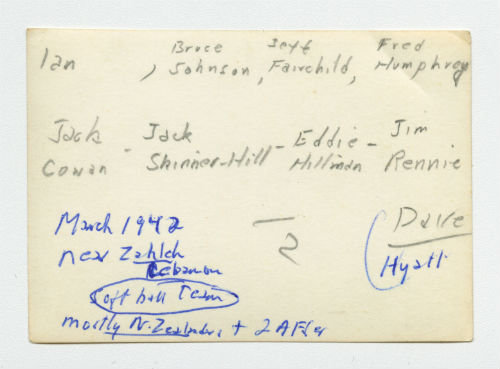 Ian , Bruce Johnson, Jeff Fairchild, Fred Humphrey
Jack Cowan - Jack Skinner-Hill - Eddie Hillman - Jim Rennie
March 1942
near Zahleh
Lebanon
Softball Team
mostly N. Zealanders, + 2 AFSer
2
Dave
Hyatt